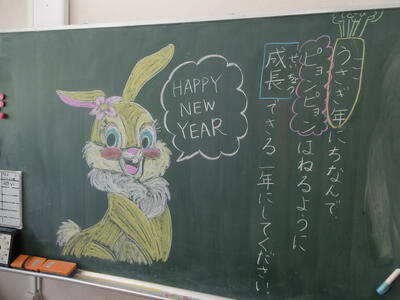 うさぎ年にちなんで、
ピョンピョンはねるように
成長できる一年にしてください
せいちょう
HAPPY
NEW
YEAR